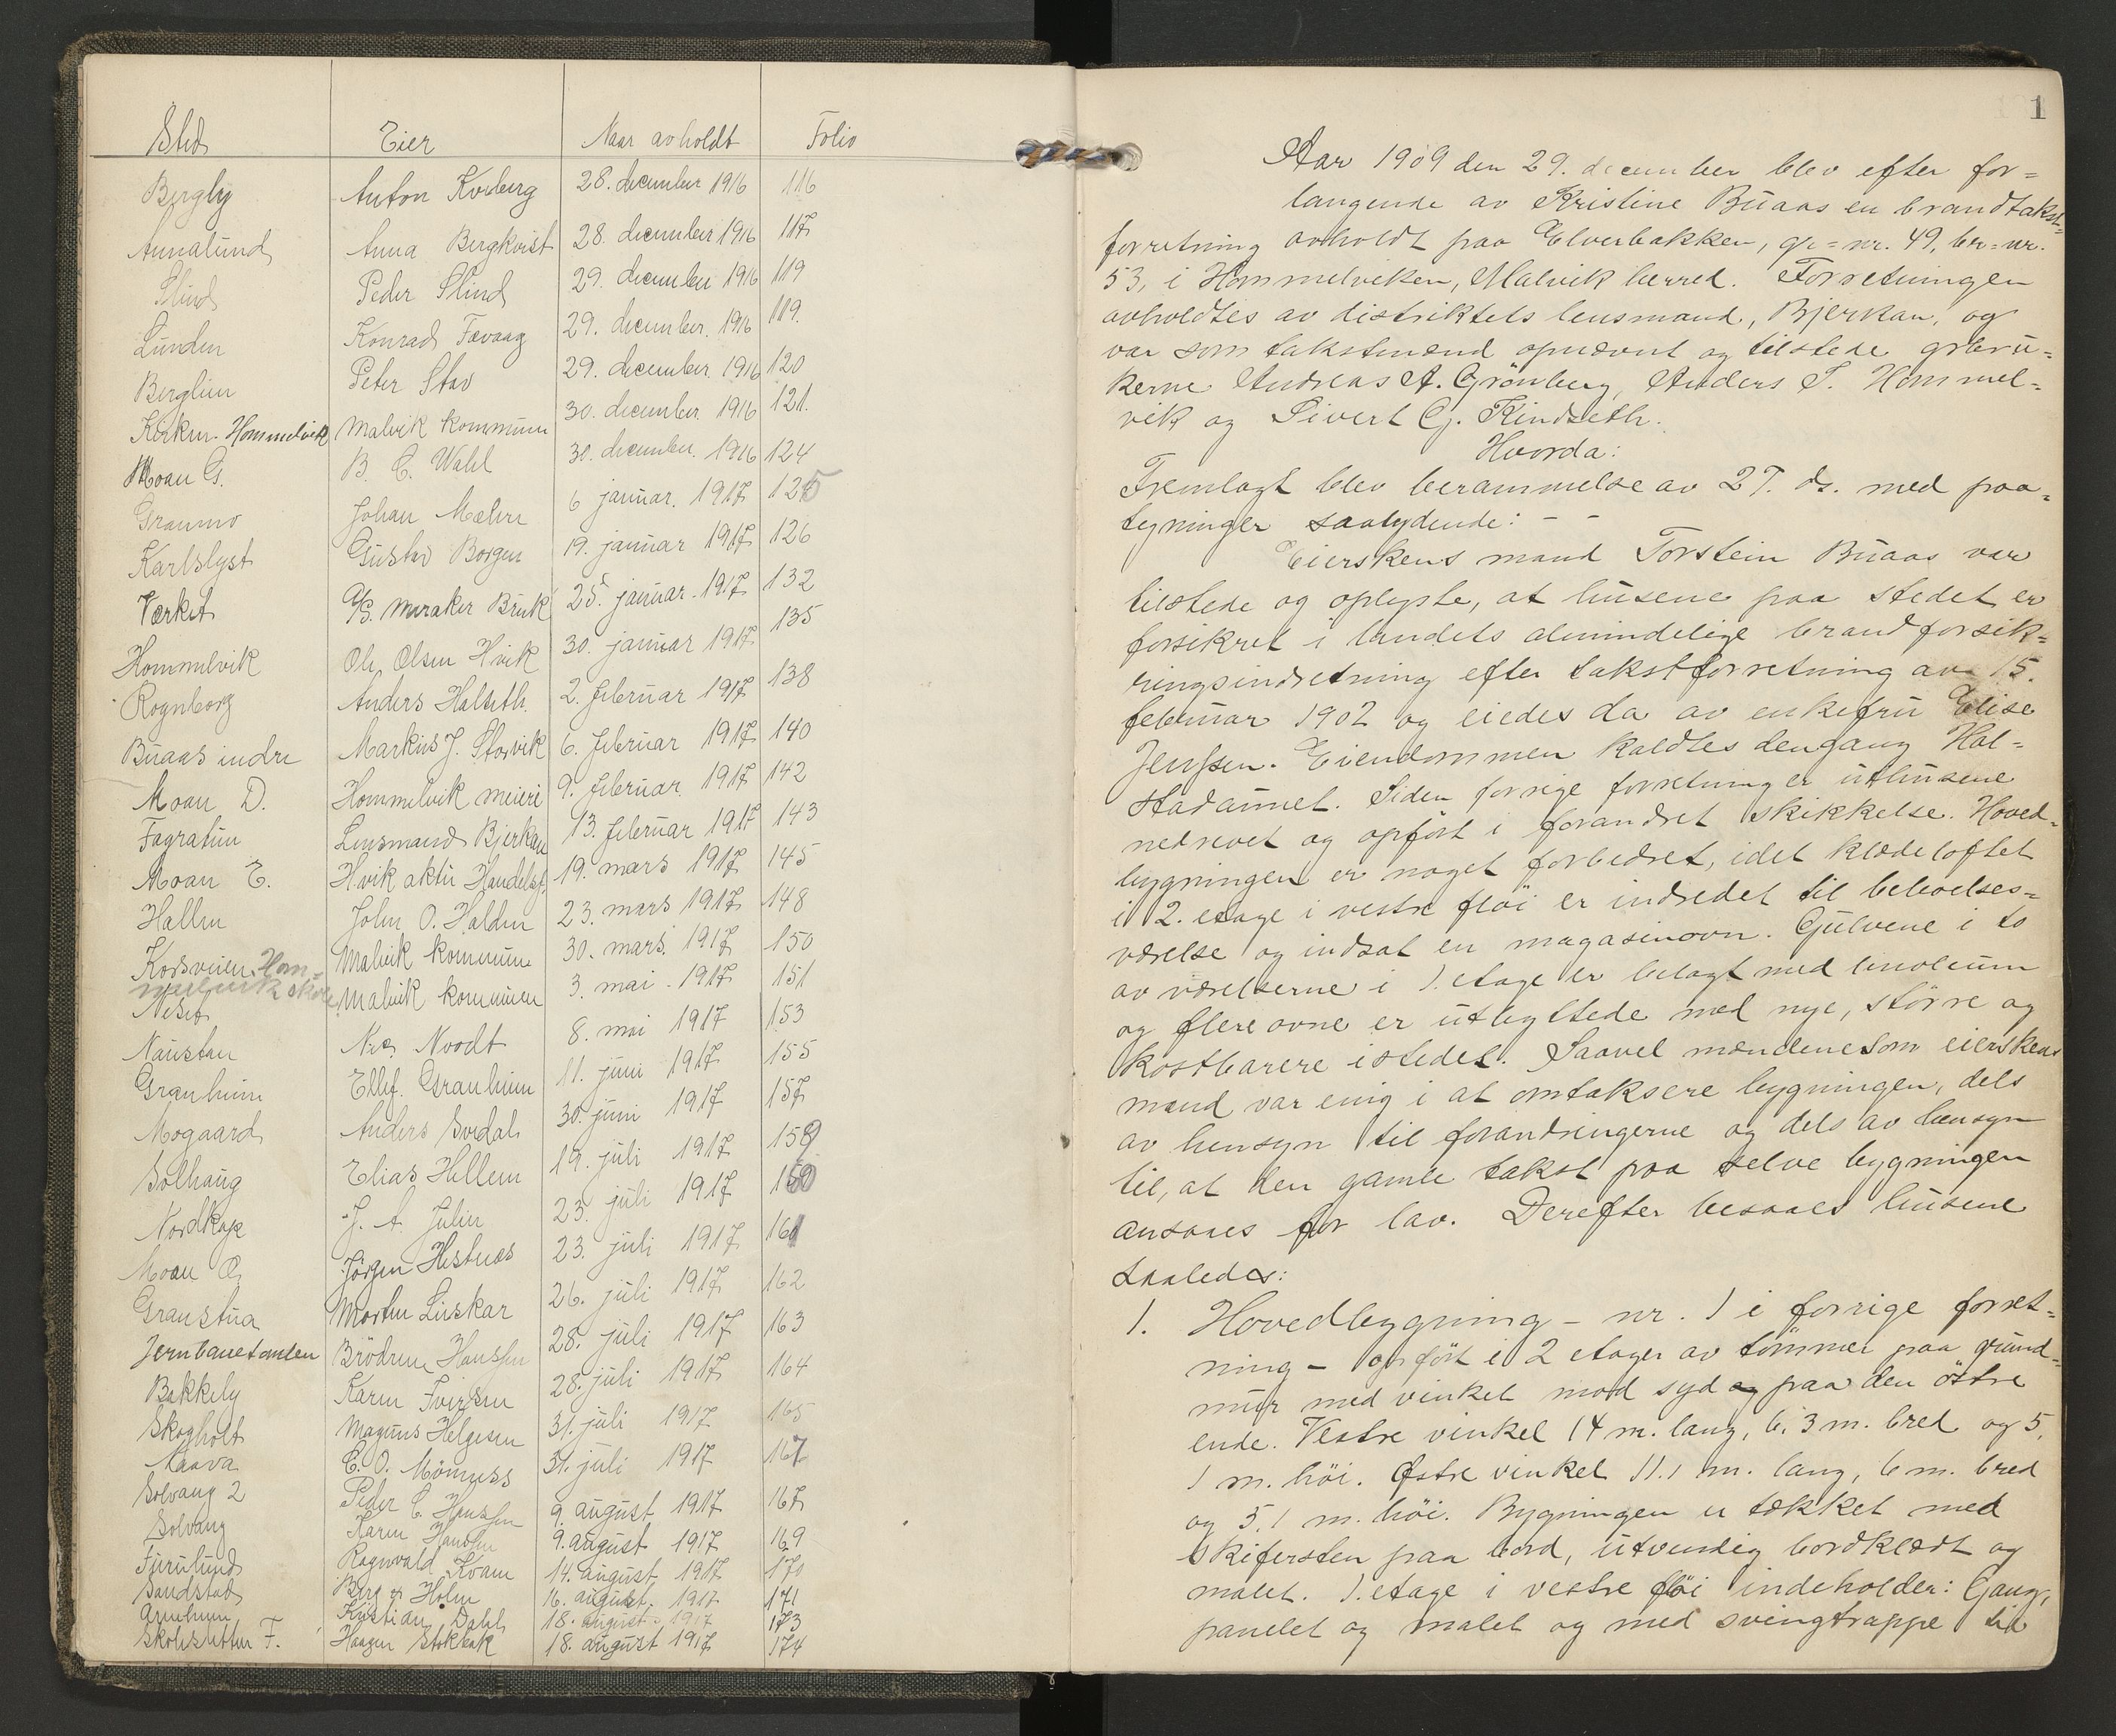 Sted Eier Naar avholdt Folio
Bergly Anton Kvaberg 28. december 1916 116
Annalund Anna Bergkvist 28. december 1916 117
Slind Peder Slind 29. december 1916 119
Lunden Konrad Fævaag 29. december. 1916 119.
Berglien Peter Stav 29. december. 1916 120
Kirken. Hommelvik Malvik kommune 30. december 1916 121.
Moan G. B. C. Wahl 30. december. 1916 124
Granmo Johan Mæhre 6 januar. 1917 125
Karlslyst Gustav Borgen 19. januar 1917 126
Værket A/S. Meraker Bruk 25. januar. 1917 132
Hommelvik Ole Olsen Hvik 30. januar 1917 135
Rognborg Anders Halseth. 2. februar 1917 138
Buaas indre Markus J. Storvik 6. februar 1917 140
Moan D. Hommelvik meieri 9. februar. 1917 142
Fagratun Lensmand Bjerkan 13. februar 1917 143
Moan E. Hvik aktie Handelsf. 19. mars 1917 145
Hallen John O. Halden 23. mars 1917 148
Korsveien. Hom- Malvik kommune 30. mars. 1917 150
melvik skole
Neset Malvik kommune 3. mai. 1917 151
Naustan Nic. Noodt 8. mai 1917 153
Granheim Ellef. Granheim 11. juni 1917 155
Mogaard Anders Svedal 30. juni 1917 157
Solhaug Elias Hellem 19. juli 1917 159
Nordkap J. A. Julin 23. juli 1917 160
Moan Jörgen Hestnæs 23. juli 1917 161
Granstua Morten Liuskar 26. juli 1917 162
Jernbanetomten Brödrene Hanssen 28. juli 1917 163
Bakkely Karen Iversen 28. juli 1917 164
Skogholt Magnus Helgesen 31. juli 1917 165
Naava C. O. Möness 31. juli 1917 167
Solvang 2 Peder C. Hanssen 9. august 1917 167
Solvang Karen Hansen 9. august 1917 169
Furulund Ragnvald Kvam 14. august 1917 170
Sandstad Berg & Holm 16. august. 1917 171
Arnheim Kristian Dahl 18. august. 1917 173
Skolesletten F. Haagen Stokbak 18. august 1917 174
1
Aar 1909 den 29. december blev efter for=
langende av Kristine Buaas en brandtakst=
forretning avholdt paa Elverbakken, gr=nr. 49, br=nr.
53, i Hommelviken, Malvik herred. Forretningen
avholdtes av distriktets lensmand, Bjerkan, og
var som takstmænd opnævnt og tilstede grbru=
kerne Andreas A. Grönberg, Anders T. Hommel=
vik og Sivert G. Kindseth.
Hvorda:
Fremlagt blev berammelse av 27. ds. med paa=
tegninger saalydende: - -
Eierskens mand Torstein Buaas var
tilstede og oplyste, at husene paa stedet er
forsikret i landets almindelige brandforsik=
ringsindretning efter takstforretning av 15.
februar 1902 og eiedes da av enkefru Elise
Jenssen. Eiendommen kaldtes dengang Hal=
stadaunet. Siden forrige forretning er uthusene
nedrevet og opfört i forandret skikkelse. Hoved=
bygningen er noget forbedret, idet klædeloftet
i 2. etage i vestre flöi er indredet til beboelses=
værelse og indsat en magasinovn. Gulvene i to
av værelserne i 1. etage er belagt med linoleum
og flere ovne er utbyttede med nye, större og
kostbarere istedet. Saavel mændene som eierskens
mand var enig i at omtaksere bygningen, dels
av hensyn til forandringerne og dels av hensyn
til, at den gamle takst paa selve bygningen
ansaaes for lav. Derefter besaaes husene
saaledes:
1. Hovedbygning – nr. 1 i forrige forret=
ning – opfört i 2 etager av tömmer paa grund=
mur med vinkel mod syd og paa den östre
ende. Vestre vinkel 14 m. lang, 6,3 m. bred og 5,
1 m. höi. Østre vinkel 11.1 m. lang, 6 m. bred
og 5.1 m. höi. Bygningen er tækket med
skifersten paa bord, utvendig bordklædt og
malet. 1. etage i vestre flöi indeholder: Gang,
panelet og malet og med svingtrappe til